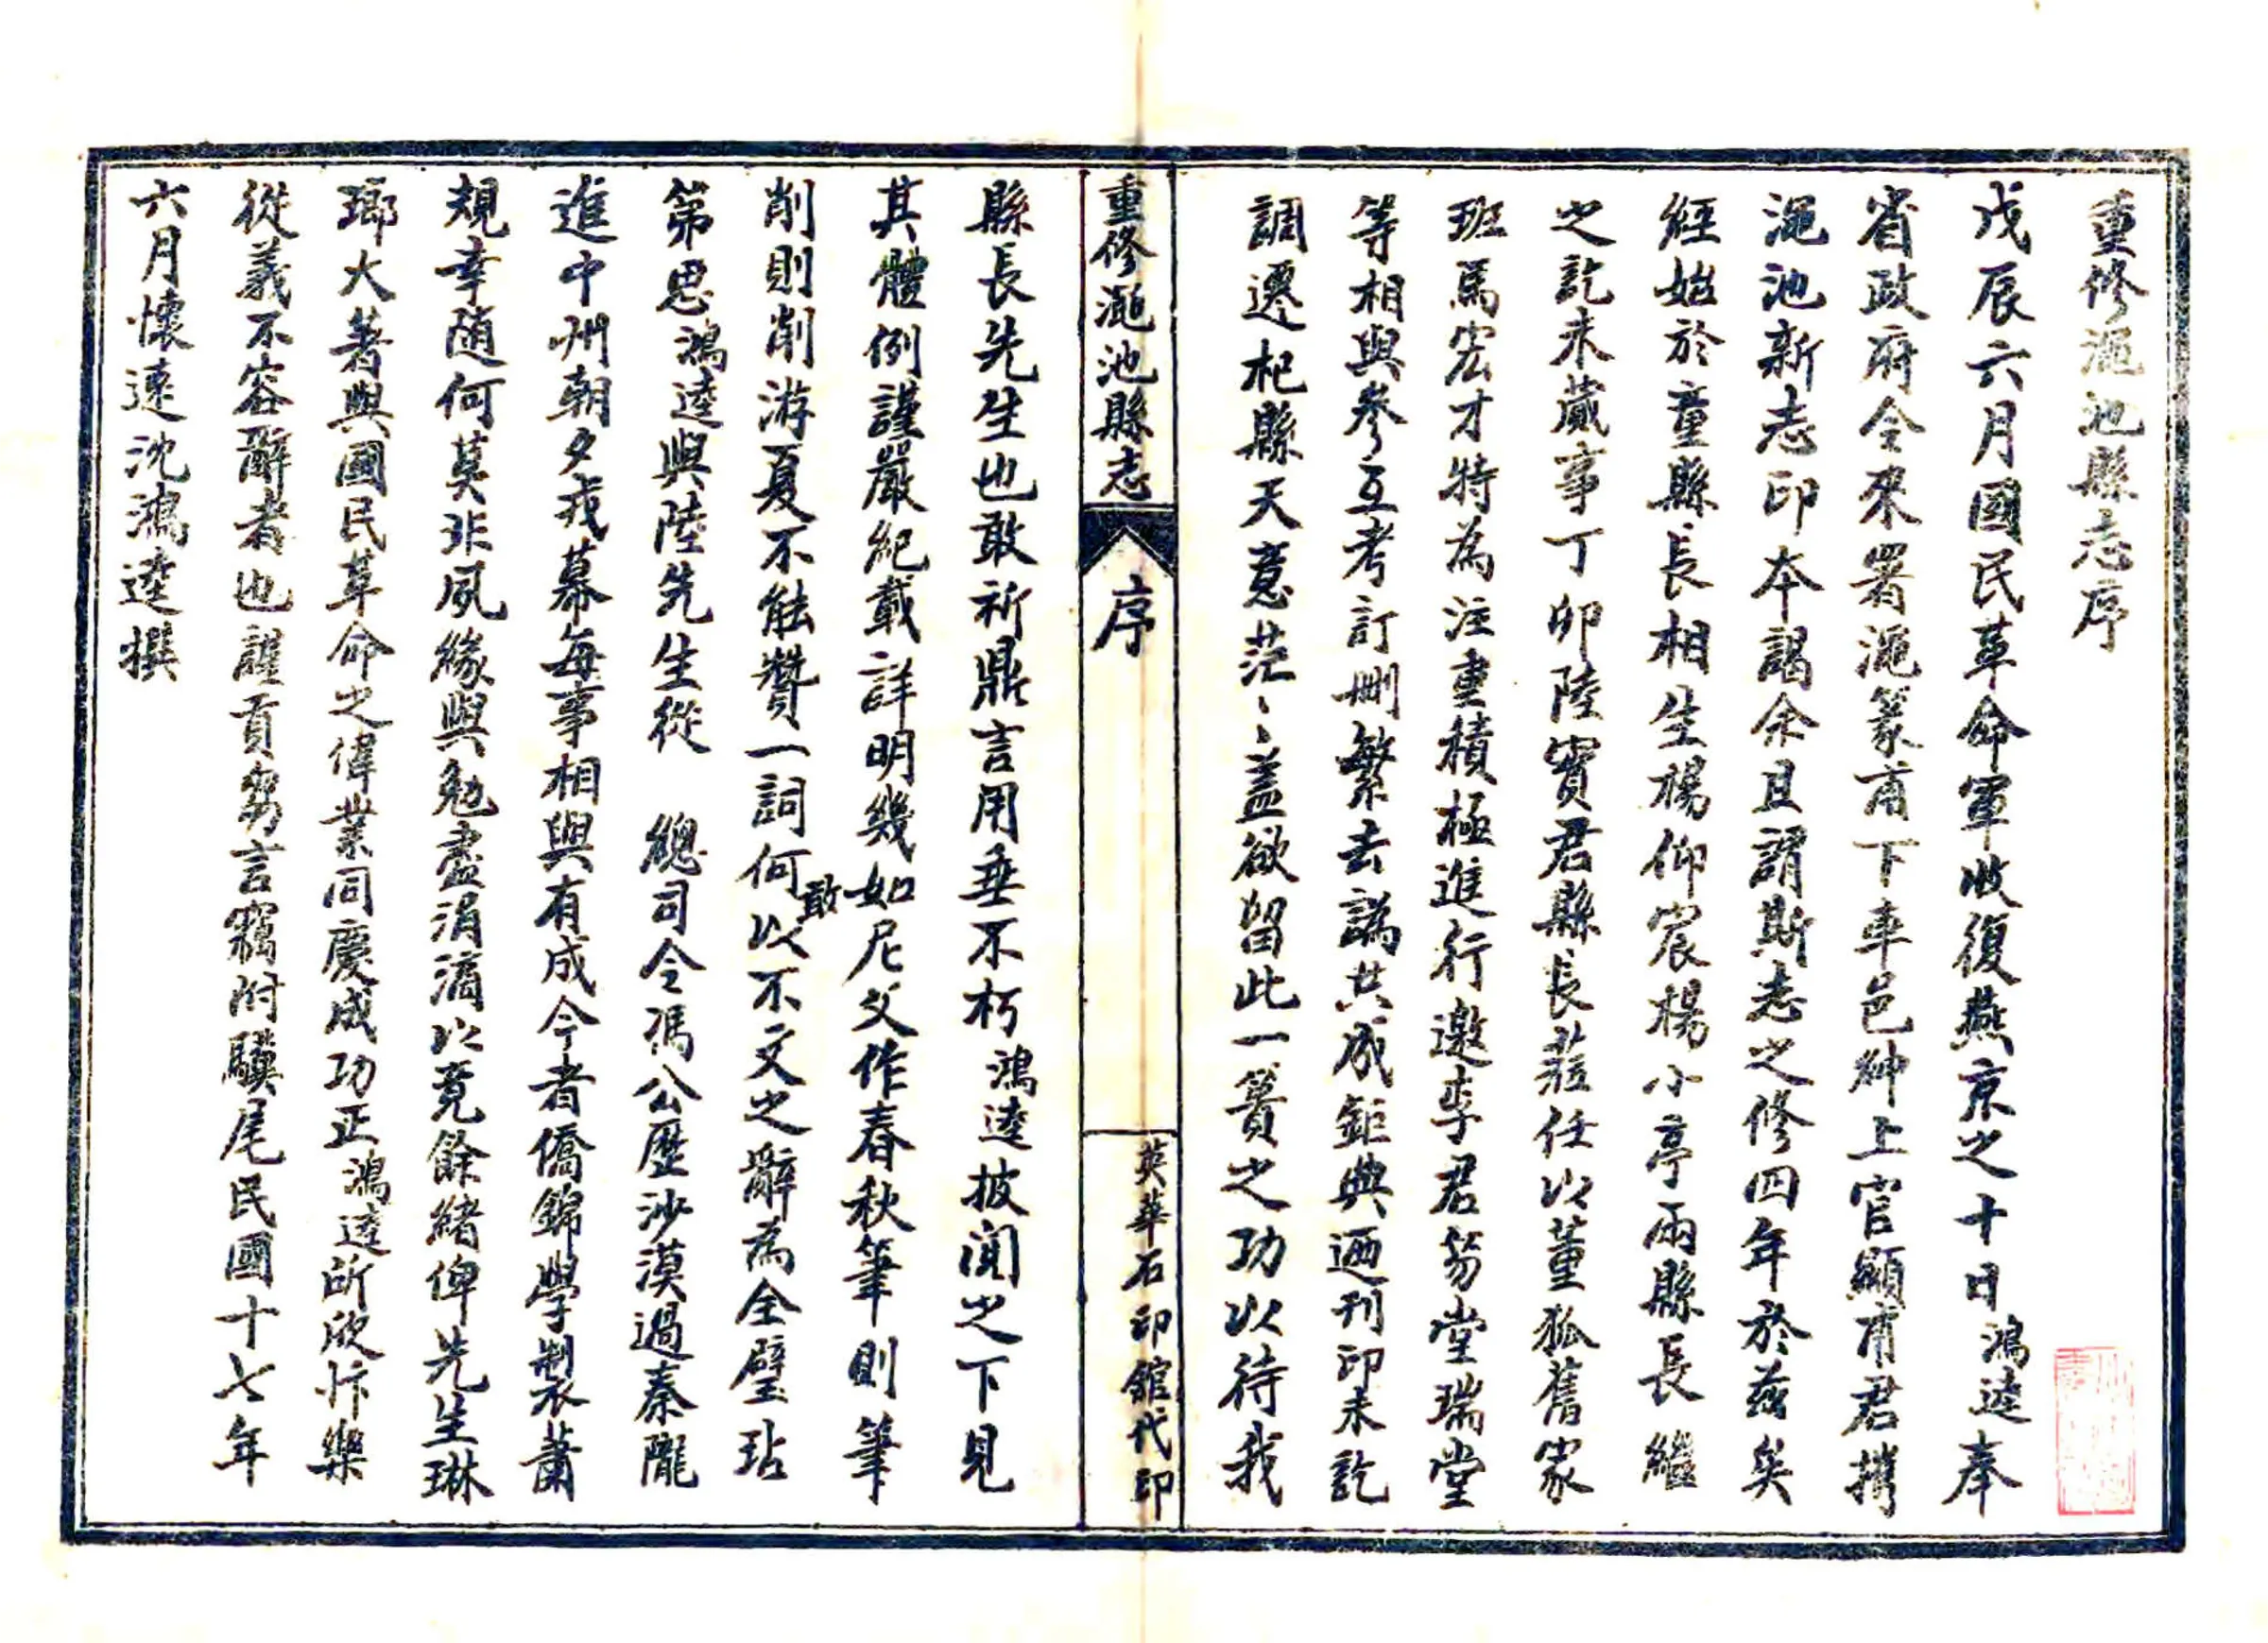 重修澠池縣志序
戊辰六月國民革命軍收復燕京之十日鴻逵奉
省政府令來署澠篆甫下車邑紳上官顯甫君攜
澠池新志印本謁余且謂斯志之修四年於茲矣
經始於童縣長相生楊仰宸楊小亭兩縣長繼
之訖未蕆事丁卯陸賓君縣長蒞任以董狐舊家
班馬宏才特為注重積極進行邀李君芴堂瑞堂
等相與參互考訂刪繁去譌共成鉅典迺刊印未訖
調遷杞縣天意茫〻蓋欲留此一簣之功以待我
重修澠池縣志
序
英華石印館代印
縣長先生也敢祈鼎言用垂不朽鴻逵披閱之下見
其體例謹嚴紀載詳明幾如尼父作春秋筆則筆
削則削游夏不能贊一詞何敢以不文之辭為全璧玷
第思鴻逵與陸先生從 總司令馮公歷沙漠過秦隴
進中州朝夕戎幕每事相與有成今者僑錦學製蕭
規幸隨何莫非夙緣與勉盡涓滴以竟餘緒俾先生琳
瑯大著與國民革命之偉業同慶成功正鴻逵所欣忭樂
從義不容辭者也謹貢芻言竊附驥尾民國十七年
六月懷遠沈鴻逵撰